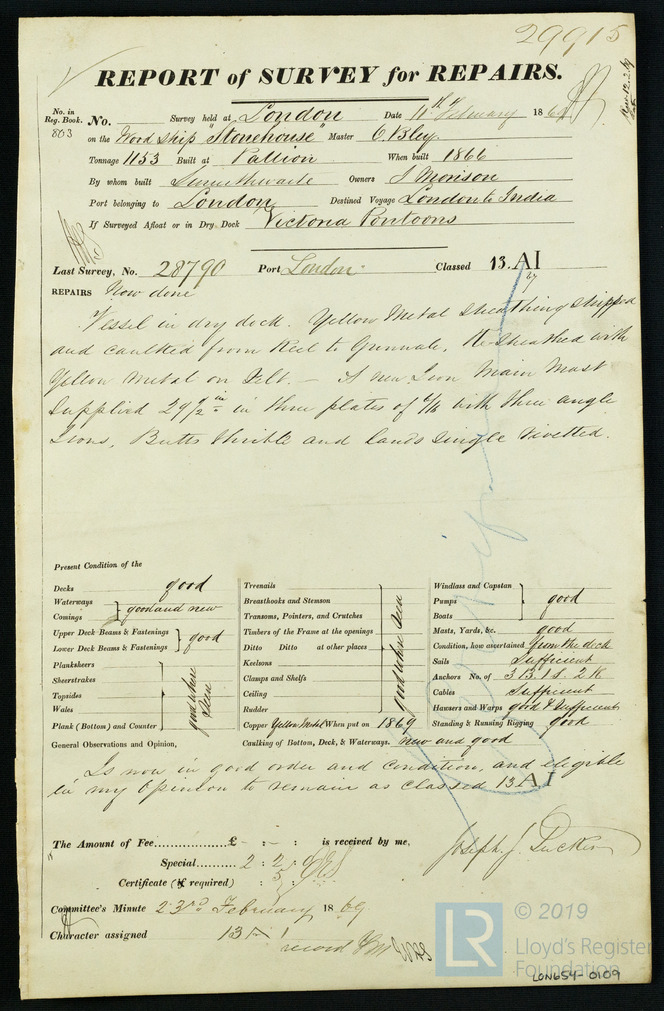 29915
REPORT of SURVEY for REPAIRS.
No. in Reg. Book. 803
No. Survey held at London Date 11th February 1869
on the Wood Ship "Stonehouse" Master C. Bley.
Tonnage 1153 Built at Pallion When built 1866
By whom built Smurthwaite Owners J Morison
Port belonging to London Destined Voyage London to India
If Surveyed Afloat or in Dry Dock Victoria Pontoons
Last Survey, No. 28790 Port London Classed 13. A1
REPAIRS Now done
Vessel in dry dock. Yellow Metal sheathing stripped
and caulked from Keel to Gunnale, Re-sheathed with
Yellow Metal on Felt. — A new Iron Main Mast
Supplied 29 1/2 in in three plates of 6/16 with three angle
Irons, Butts thrible and lands single rivetted.
Present Condition of the
Decks good
Waterways
Comings } good and new
Upper Deck Beams & Fastenings
Lower Deck Beams & Fastenings } good
Planksheers
Sheerstrakes
Topsides
Wales
Plank (Bottom) and Counter } good where seen
Treenails
Breasthooks and Stemson
Transoms, Pointers, and Crutches
Timbers of the Frame at the openings
Ditto Ditto at other places
Keelsons
Clamps and Shelfs
Ceiling
Rudder } good where seen
Copper Yellow Metal When put on 1869
Caulking of Bottom, Deck, & Waterways. new and good
Windlass and Capstan
Pumps
Boats } good
Masts, Yards, &c. good
Condition, how ascertained from the deck
Sails Sufficient
Anchors No. of 3 B. 1 S. 2 K
Cables Sufficient
Hawsers and Warps good & Sufficient
Standing & Running Rigging good
General Observations and Opinion,
Is now in good order and condition, and eligible
in my Opinion to remain as classed 13 A1
The Amount of Fee............... £ - : - : is received by me,
Special.......... 2 : 2 : 0
Certificate (if required) : 5 :
Joseph J. Tucker
Committee's Minute 23rd February 1869.
Character assigned 13 A 1
record YM
LR © 2019
Lloyd's Register
Foundation
LON654-0109